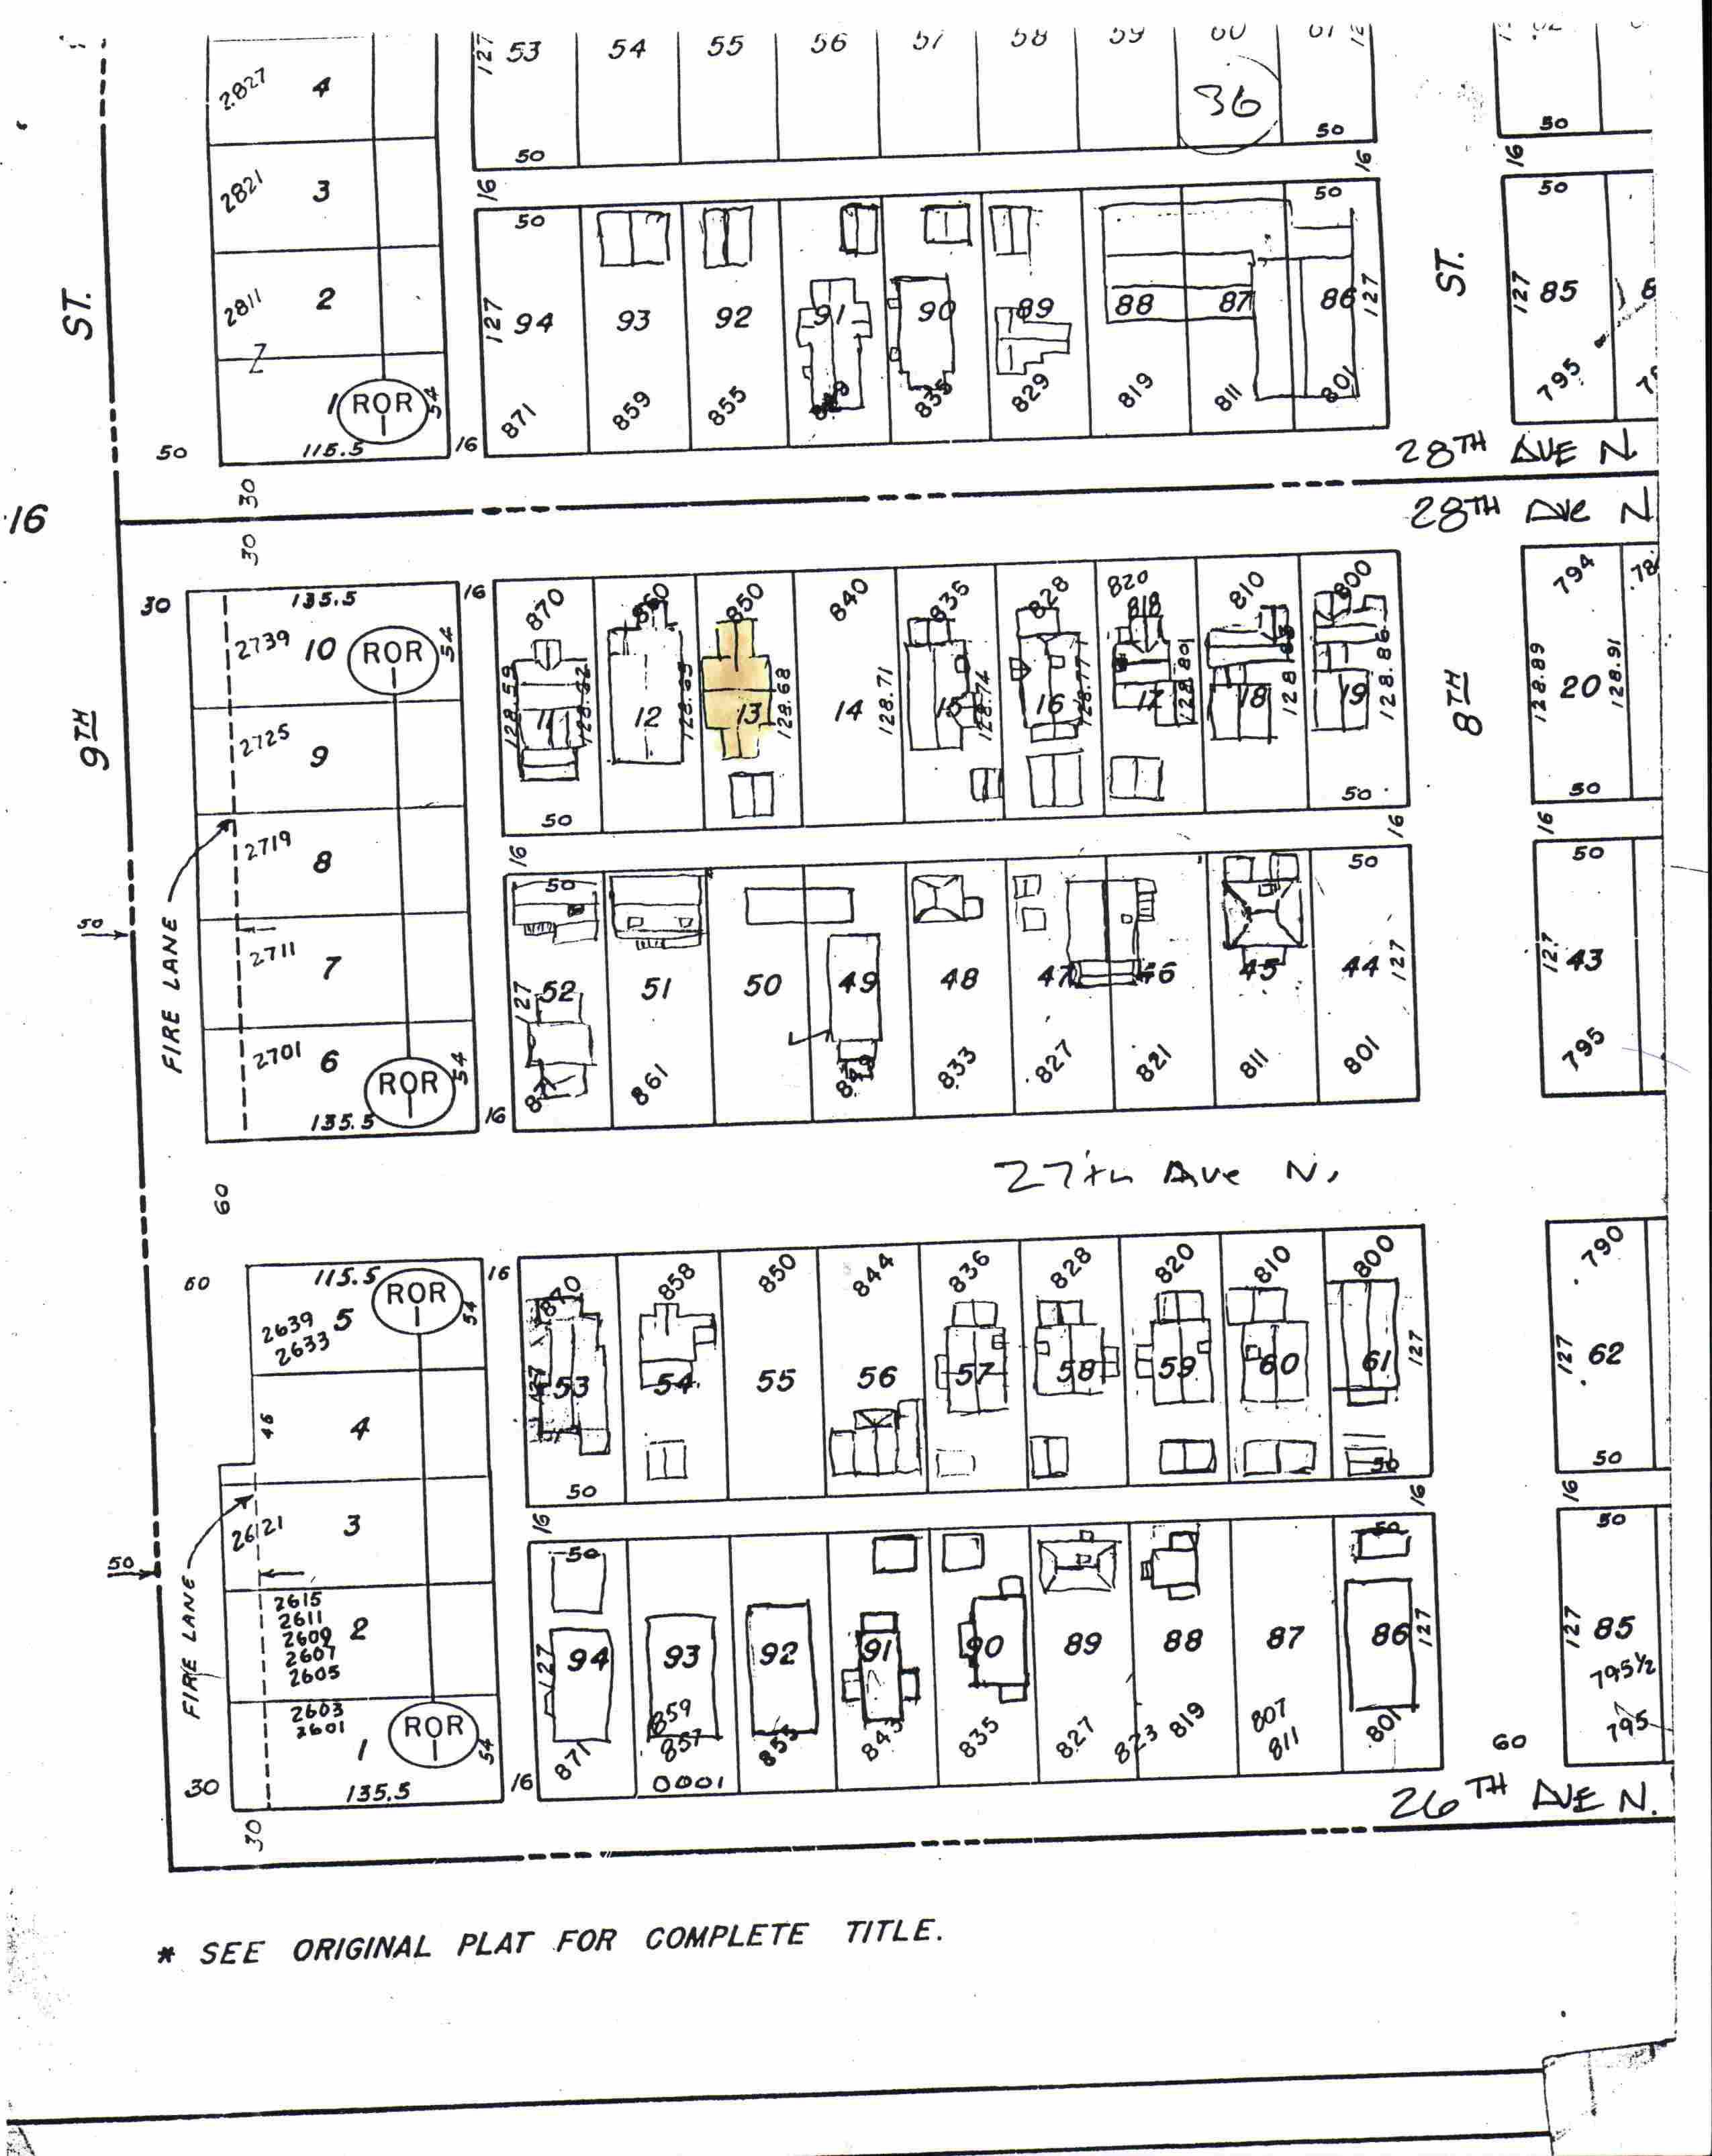 2827 4
127 53 54 55 56 57 58 59 60 61
36
50 50 50
2821 3
16 16 16
50 50 50
2811 2
ST.
127 94 93 92 91 90 89 88 87 86 127
ST.
127 85
1 ROR 1 54
871 859 855 835 829 819 811 801 795
50 115.5 16
28TH AVE N.
30
16
28TH AVE N
30
30 135.5 16
870 860 850 840 835 828 820 818 810 800 794
2739 10 ROR 1 54
128.59 11 12 128.65 13 128.68 14 128.71 15 128.74 16 128.77 17 128.80 18 19 128.86 128.89 20 128.91
9TH
8TH
2725 9
50 50 50
2719 8
16 16 16
50 50 50
FIRE LANE
50
2711 7
127 52 51 50 49 48 47 46 45 44 127 127 43
2701 6 ROR 1 54
861 833 827 821 811 801 795
135.5 16
27th Ave N.
60
60 115.5 16
870 858 850 844 836 828 820 810 800 790
2639 5 ROR 1 54
2633
127 53 54 55 56 57 58 59 60 61 127 127 62
46 4
50 50 50
2621 3
16 16 16
50 50 50
50
FIRE LANE
2615
2611
2609 2
2607
2605
127 94 93 92 91 90 89 88 87 86 127 127 85
795½
2603
2601
1 ROR 1 54
871 859 857 853 843 835 827 823 819 807 811 801 60 795
30 135.5 16 0001
26TH AVE N.
30
* SEE ORIGINAL PLAT FOR COMPLETE TITLE.